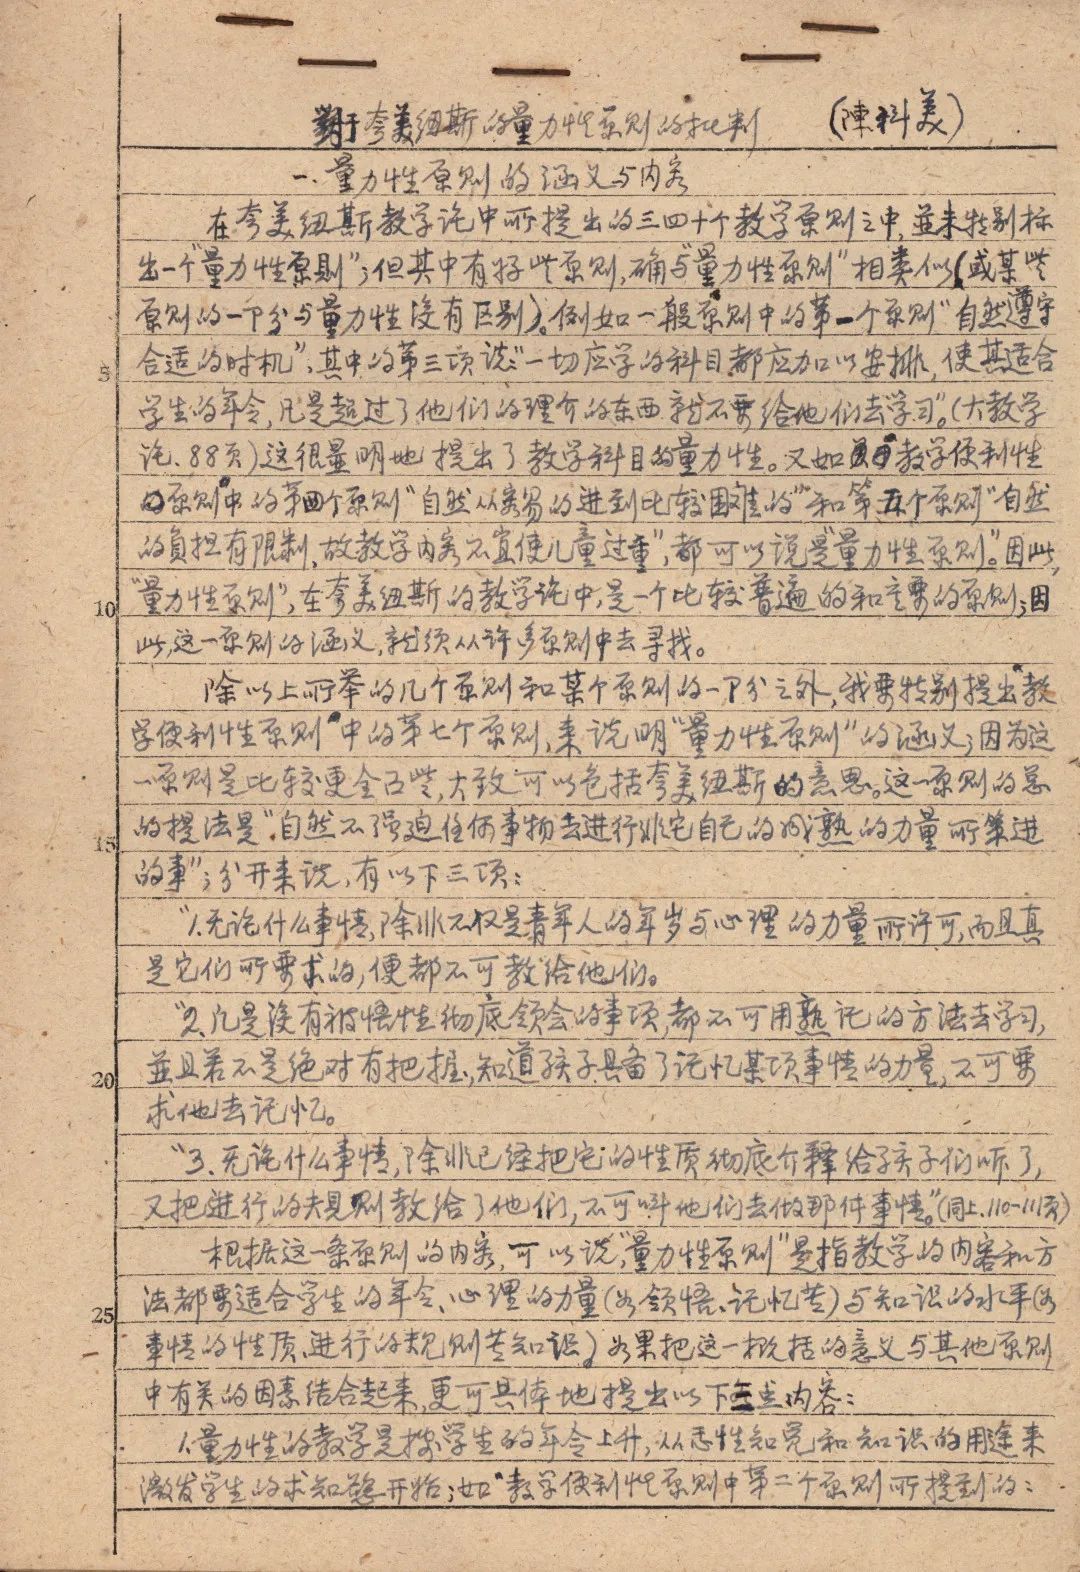 對于夸美纽斯的量力性原则的批判 (陳科美)
一.量力性原则的涵义与内容
在夸美纽斯教学论中所提出的三四十个教学原则之中,並未特别标
出一个"量力性原則";但其中有好些原则,确与"量力性原则"相类似(或某些
原则的一部分与量力性没有区别)。例如一般原则中的第一个原则"自然遵守
5 合适的时机";其中的第三项说:"一切应学的科目都应加以安排,使其适合
学生的年令,凡是超过了他们的理介的东西就不要给他们去学习"。(大教学
论、88页)这很显明地提出了教学科目的量力性。又如教学便利性
的原则中的第四个原则"自然从容易的进到比较困难的"和第五个原则"自然
的負担有限制,故教学内容不宜使儿童过重",都可以说是"量力性原则"。因此,
10 "量力性原则",在夸美纽斯的教学论中,是一个比较普遍的和主要的原则;因
此,这一原则的涵义,就须从许多原则中去寻找。
除以上所举的几个原则和某个原则的一部分之外,我要特别提出"教
学便利性原则"中的第七个原则,来说明"量力性原则"的涵义;因为这
一原则是比较更全面些,大致可以包括夸美纽斯的意思。这一原则的总
15 的提法是"自然不强迫任何事物去进行非它自己的成熟的力量所策进
的事";分开来说,有以下三项:
"1.无论什么事情,除非不仅是青年人的年岁与心理的力量所许可,而且真
是它们所要求的,便都不可教给他们。
"2.凡是没有被悟性彻底领会的事项,都不可用熟记的方法去学习,
20 並且若不是绝对有把握,知道孩子具备了记忆某项事情的力量,不可要
求他去记忆。
"3.无论什么事情,除非已经把它的性质彻底介释给孩子们听了,
又把进行的规则教给了他们,不可叫他们去做那件事情。"(同上.110-111页)
根据这一条原则的内容,可以说"量力性原则"是指教学的内容和方
25 法都要适合学生的年令、心理的力量(如领悟、记忆苦)与知识的水平(如
事情的性质、进行的规则苦知识)。如果把这一概括的意义与其他原则
中有关的因素结合起来,更可具体地提出以下三点内容:
1.量力性的教学是按学生的年令上升,从悟性知觉和知识的用途来
激发学生的求知慾开始;如"教学便利性原则中第二个原则所提到的: